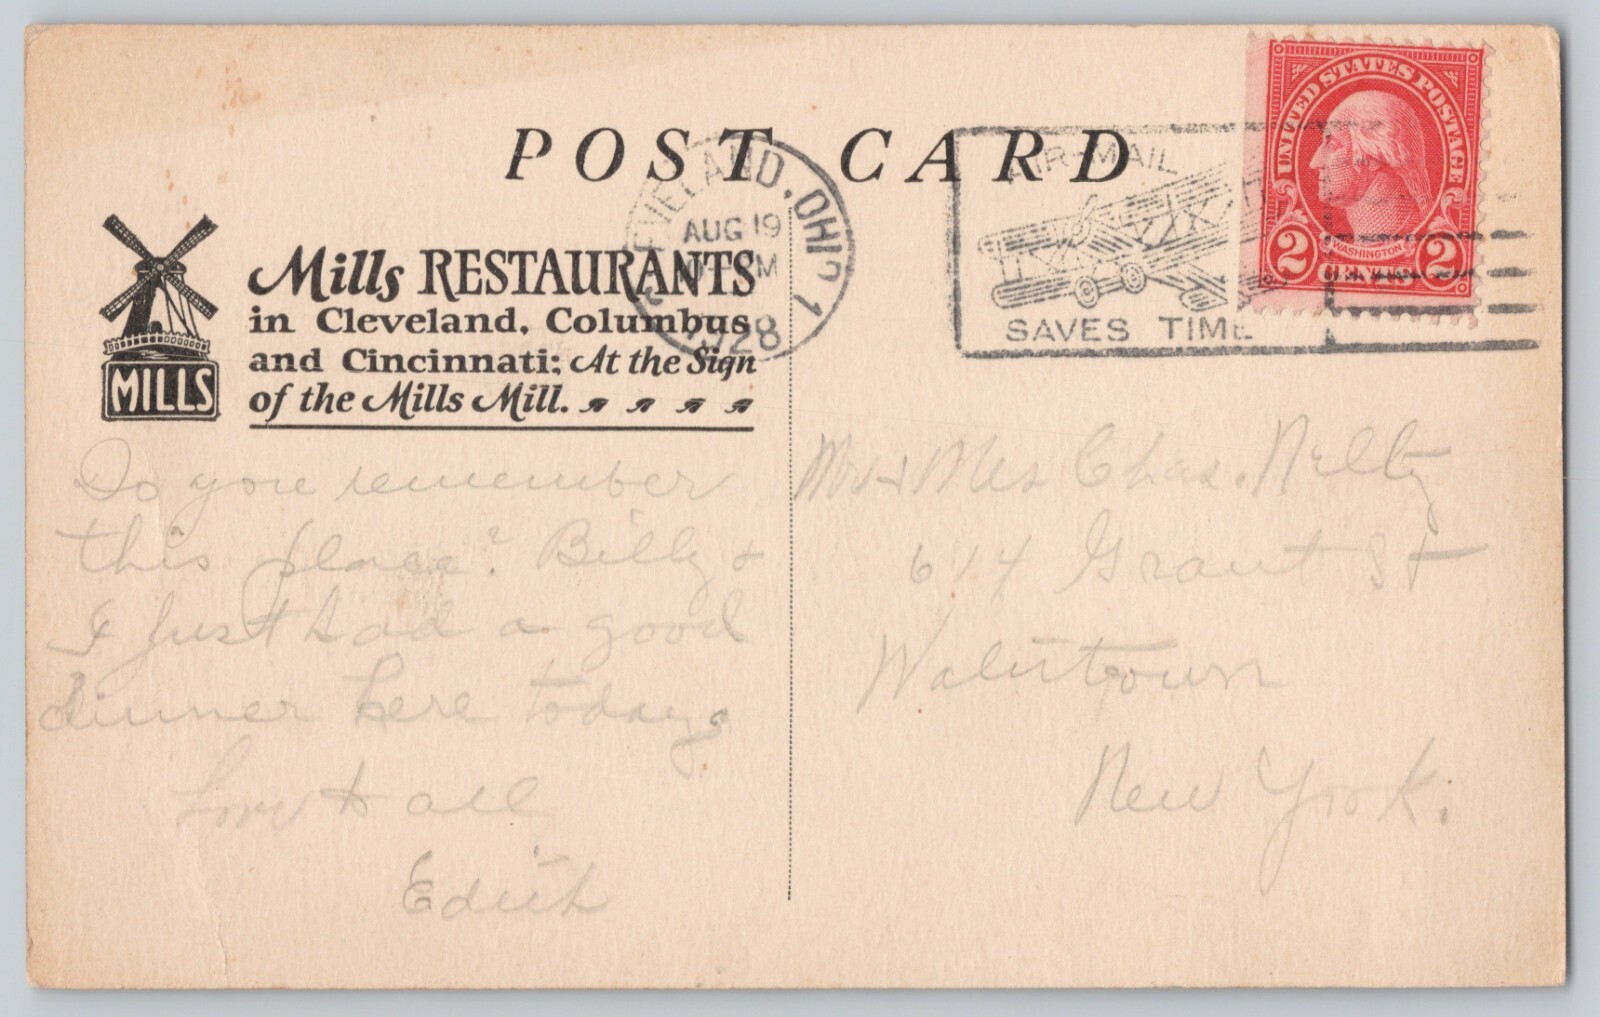 POST CARD
CLEVELAND, OHIO 1
AUG 19
M
1928
AIR-MAIL
SAVES TIME
UNITED STATES POSTAGE
WASHINGTON
2 CENTS 2
Mills RESTAURANTS
in Cleveland, Columbus
and Cincinnati; At the Sign
of the Mills Mill.
MILLS
Do you remember
this place? Billy +
I just had a good
dinner here today.
Love to all
Edith
Mr + Mrs Chas.
614 Grant St
Watertown
New York.